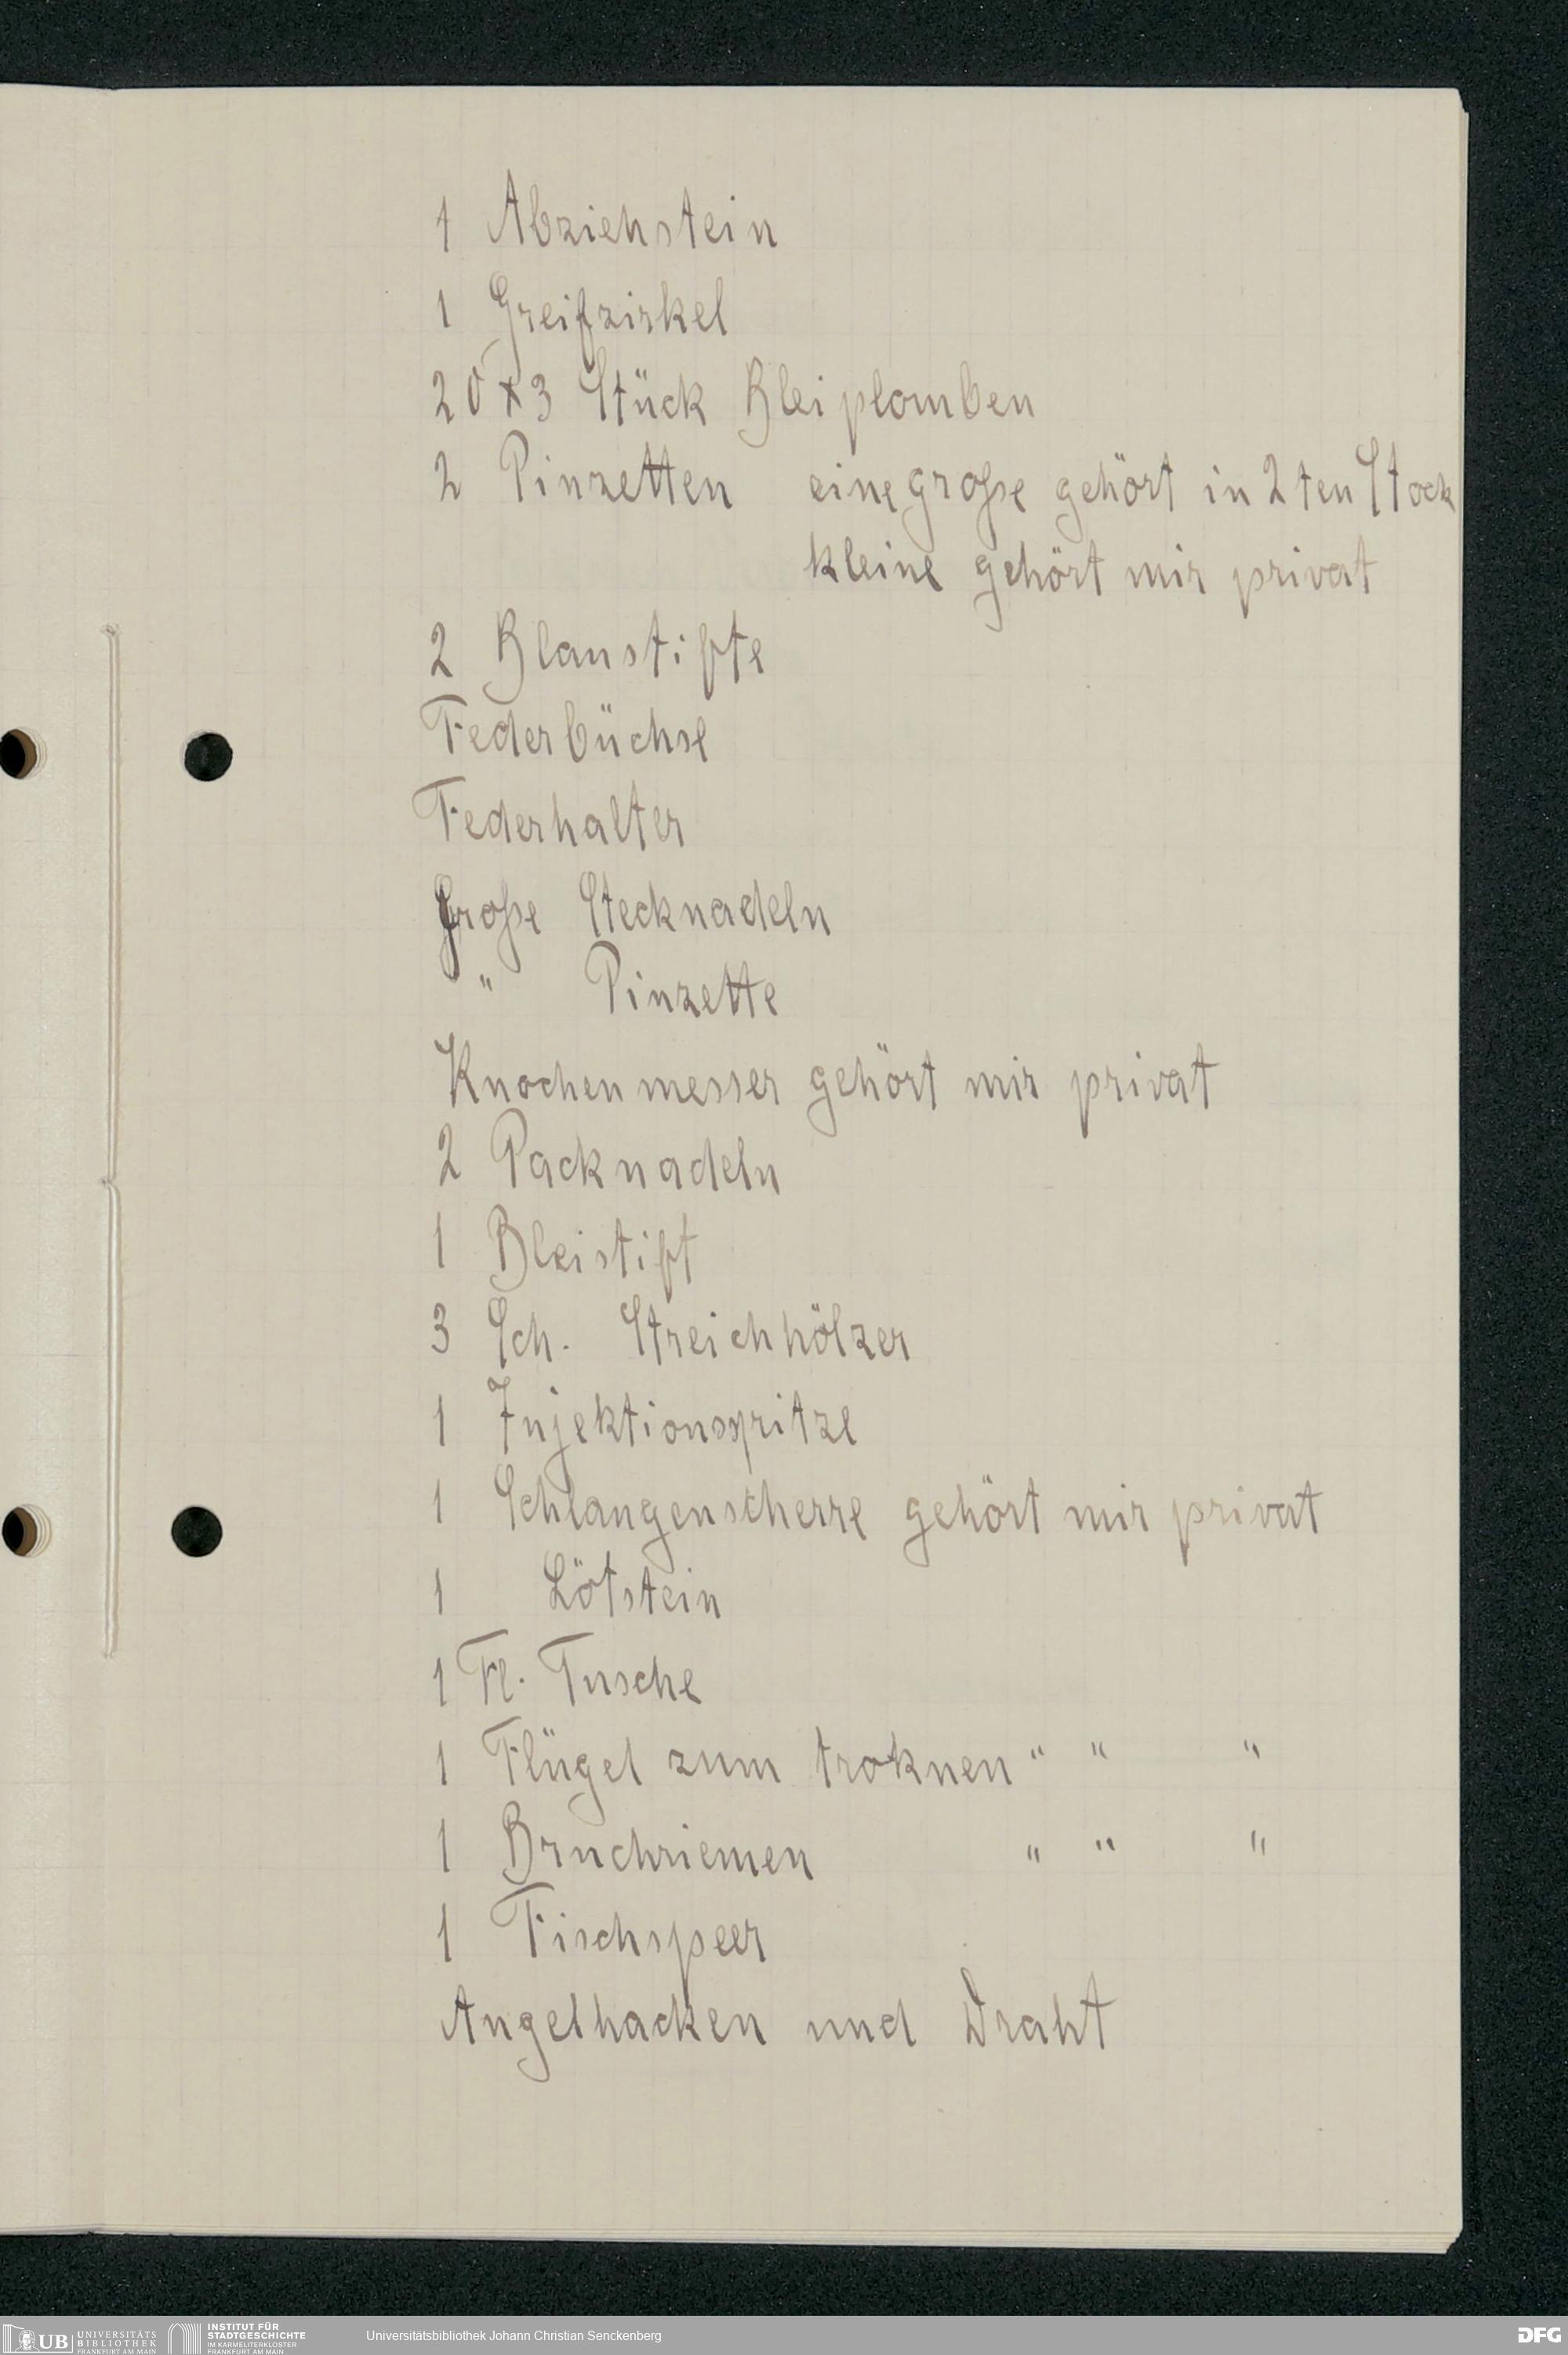 1 Abziehstein
1 Greifzirkel
20 x 3 Stück Bleiplomben
2 Pinzetten eine große gehört in 2ten Stock
kleine gehört mir privat
2 Blaustifte
Federbüchse
Federhalter
Große Stecknadeln
" Pinzette
Knochenmesser gehört mir privat
2 Packnadeln
1 Bleistift
3 Sch. Streichhölzer
1 Injektionsspritze
1 Schlangenscherre gehört mir privat
1 Lötstein
1 Fl. Tusche
1 Flügel zum troknen " " "
1 Bruchriemen " " "
1 Fischspeer
Angelhacken und Draht
UB UNIVERSITÄTS BIBLIOTHEK FRANKFURT AM MAIN
INSTITUT FÜR STADTGESCHICHTE IM KARMELITERKLOSTER FRANKFURT AM MAIN
Universitätsbibliothek Johann Christian Senckenberg
DFG